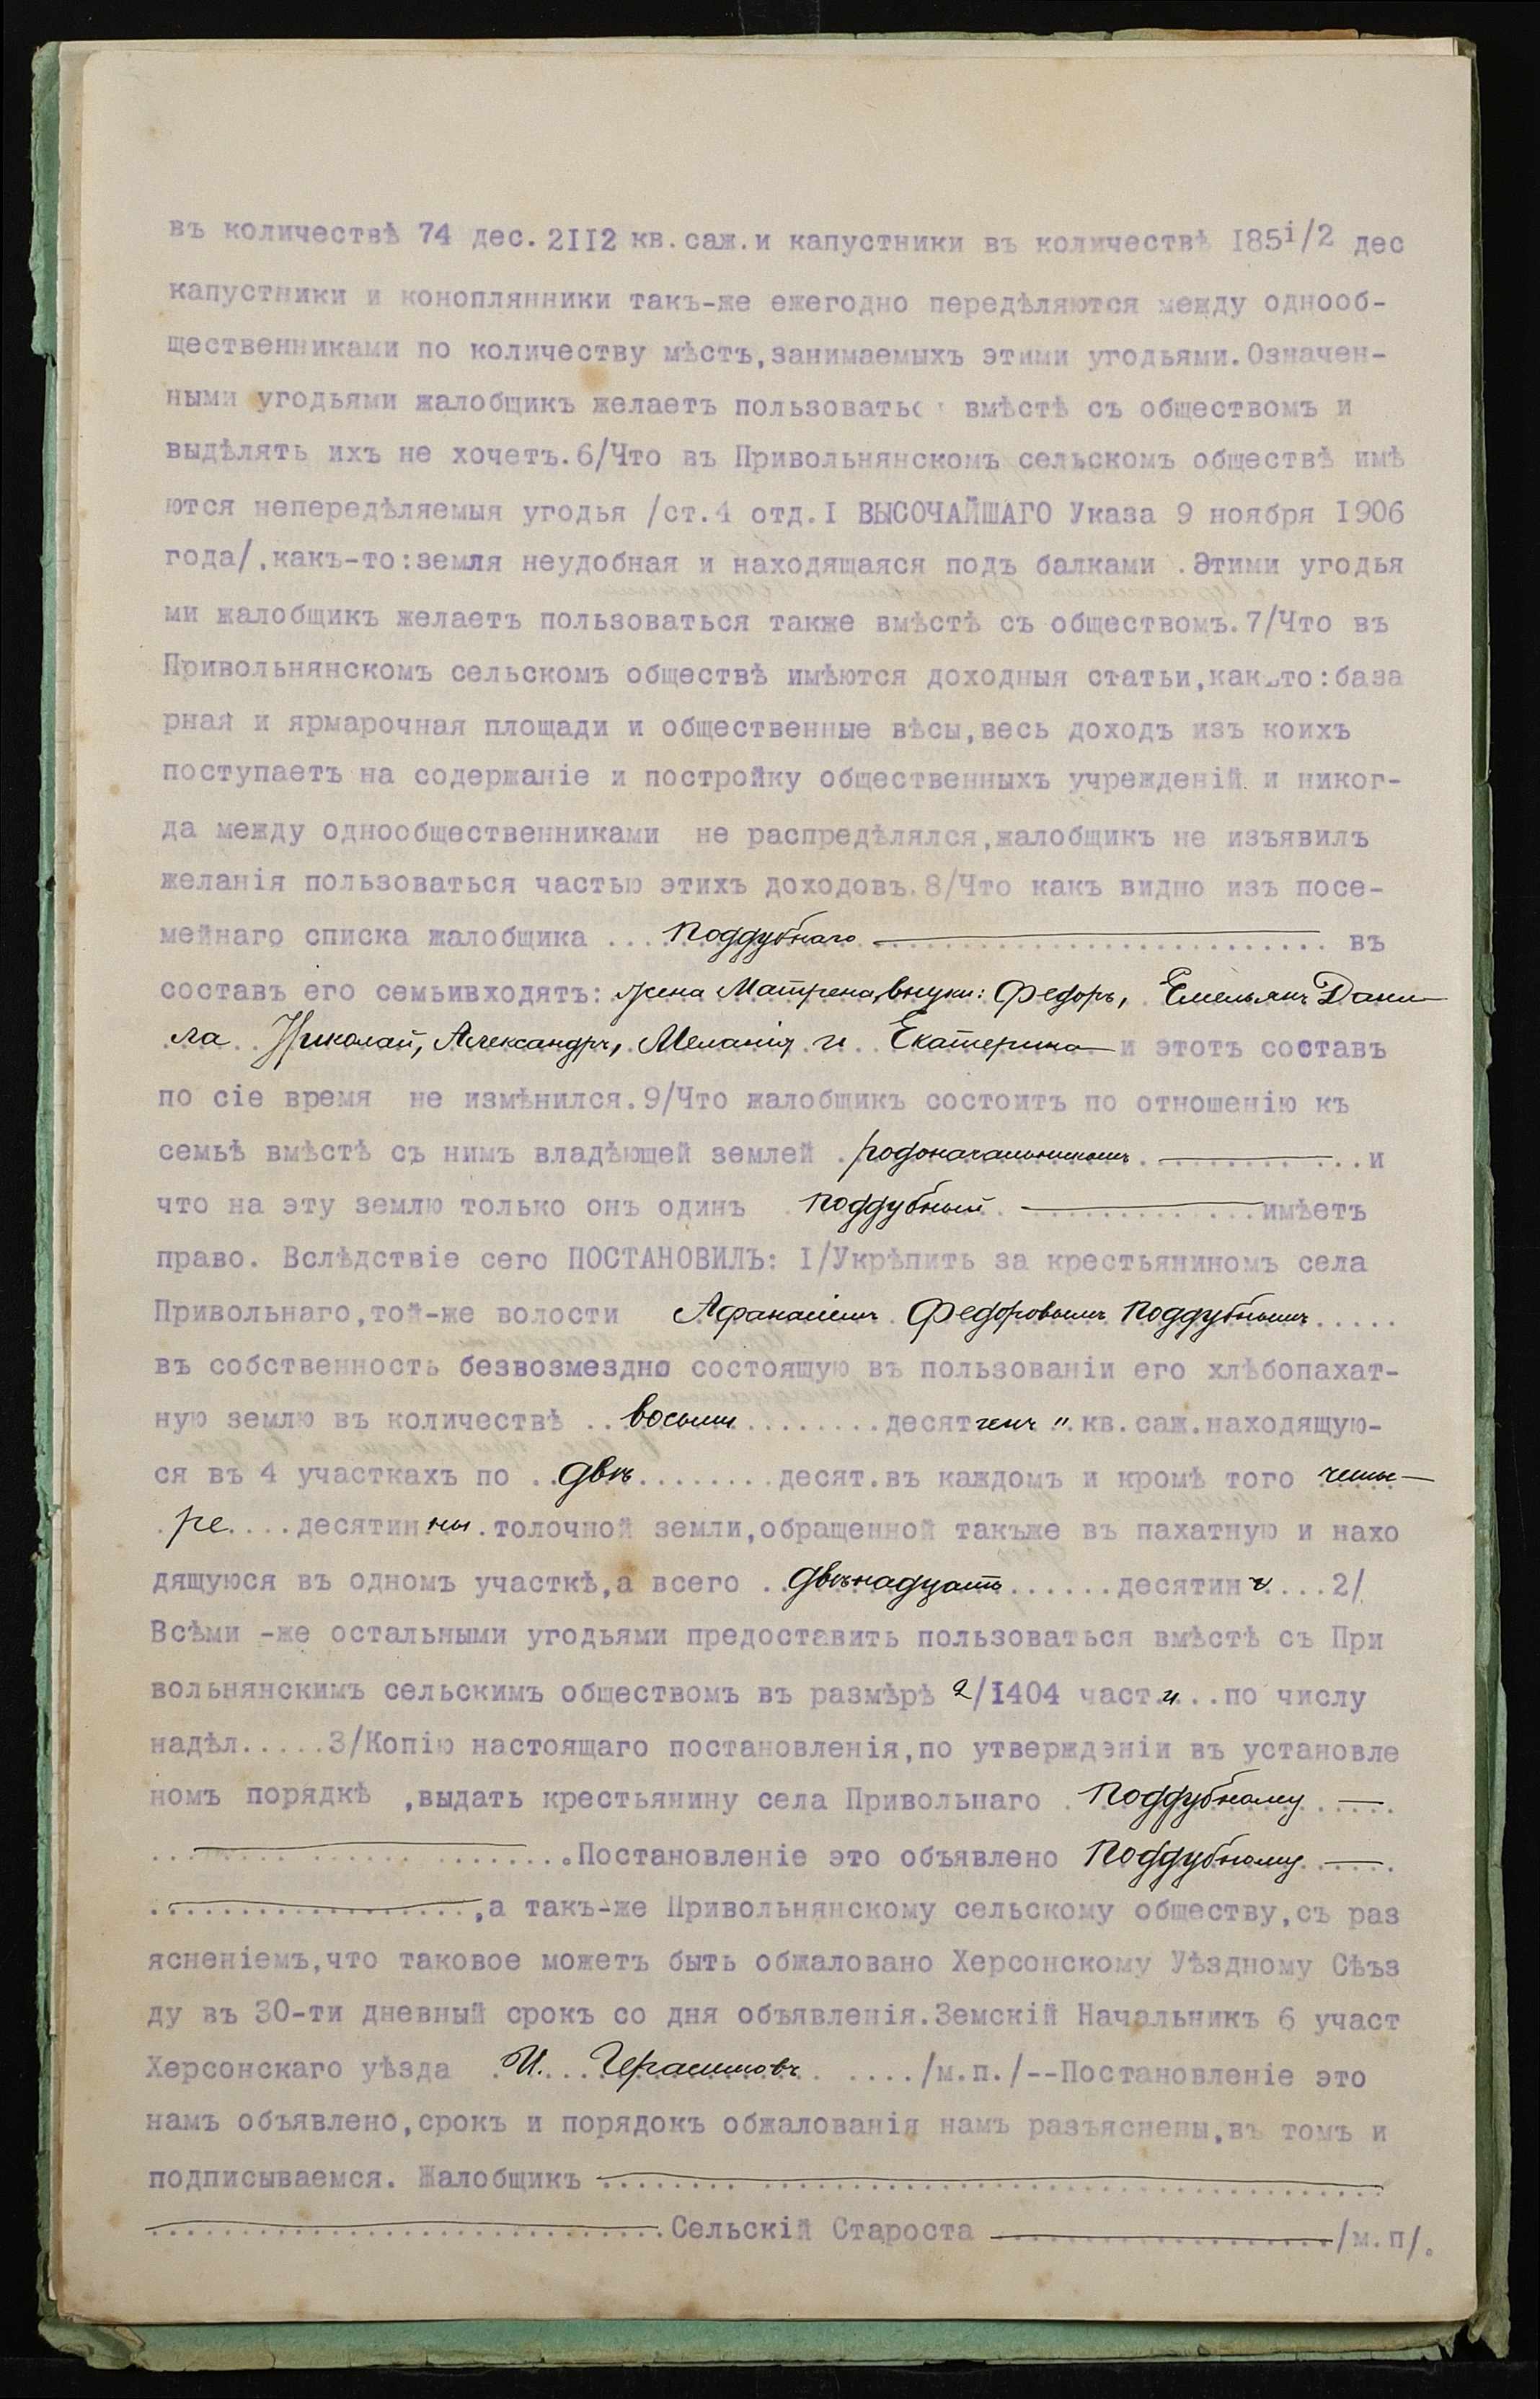 въ количествѣ 74 дес. 2II2 кв.саж.и капустники въ количествѣ I85i/2 дес
капустники и коноплянники такъ-же ежегодно передѣляются между однооб-
щественниками по количеству мѣстъ,занимаемыхъ этими угодьями.Означен-
ными угодьями жалобщикъ желаетъ пользоватьс вмѣстѣ съ обществомъ и
выдѣлять ихъ не хочетъ.6/Что въ Привольнянскомъ сельскомъ обществѣ имѣ
ются непередѣляемыя угодья /ст.4 отд.I ВЫСОЧАЙШАГО Указа 9 ноября I906
года/,какъ-то:земля неудобная и находящаяся подъ балками .Этими угодья
ми жалобщикъ желаетъ пользоваться также вмѣстѣ съ обществомъ.7/Что въ
Привольнянскомъ сельскомъ обществѣ имѣются доходныя статьи,какъто:база
рная и ярмарочная площади и общественные вѣсы,весь доходъ изъ коихъ
поступаетъ на содержаніе и постройку общественныхъ учрежденій и никог-
да между однообщественниками не распредѣлялся,жалобщикъ не изъявилъ
желанія пользоваться частью этихъ доходовъ.8/Что какъ видно изъ посе-
мейнаго списка жалобщика ... Поддубнаго ... въ
составъ его семьивходятъ: жена Матрена, внуки: Федоръ, Емельянъ Дани-
ла Николай, Александръ, Меланія и Екатерина и этотъ составъ
по сіе время не измѣнился.9/Что жалобщикъ состоитъ по отношенію къ
семьѣ вмѣстѣ съ нимъ владѣющей землей родоначальникомъ ... и
что на эту землю только онъ одинъ Поддубный ... имѣетъ
право. Вслѣдствіе сего ПОСТАНОВИЛЪ: I/Укрѣпить за крестьяниномъ села
Привольнаго,той-же волости Афанасіемъ Федоровымъ Поддубнымъ.....
въ собственность безвозмездно состоящую въ пользованіи его хлѣбопахат-
ную землю въ количествѣ ..восьми........десятинъ ".кв.саж.находящую-
ся въ 4 участкахъ по ..двѣ........десят.въ каждомъ и кромѣ того четы-
.ре....десятинны.толочной земли,обращенной такъже въ пахатную и нахо
дящуюся въ одномъ участкѣ,а всего ..двѣнадцать......десятинъ....2/
Всѣми -же остальными угодьями предоставить пользоваться вмѣстѣ съ При
вольнянскимъ сельскимъ обществомъ въ размѣрѣ 2/I404 части...по числу
надѣл.....3/Копію настоящаго постановленія,по утвержденіи въ установле
номъ порядкѣ ,выдать крестьянину села Привольнаго . Поддубному .....
...........................Постановленіе это объявлено Поддубному ......
...................,а такъ-же Привольнянскому сельскому обществу,съ раз
ясненіемъ,что таковое можетъ быть обжаловано Херсонскому Уѣздному Сѣъз
ду въ 30-ти дневный срокъ со дня объявленія.Земскій Начальникъ 6 участ
Херсонскаго уѣзда .И....Герасимовъ.. ..../м.п./--Постановленіе это
намъ объявлено,срокъ и порядокъ обжалованія намъ разъяснены,въ томъ и
подписываемся. Жалобщикъ ........ ....................................
..............................Сельскій Староста ..................../м.п/.